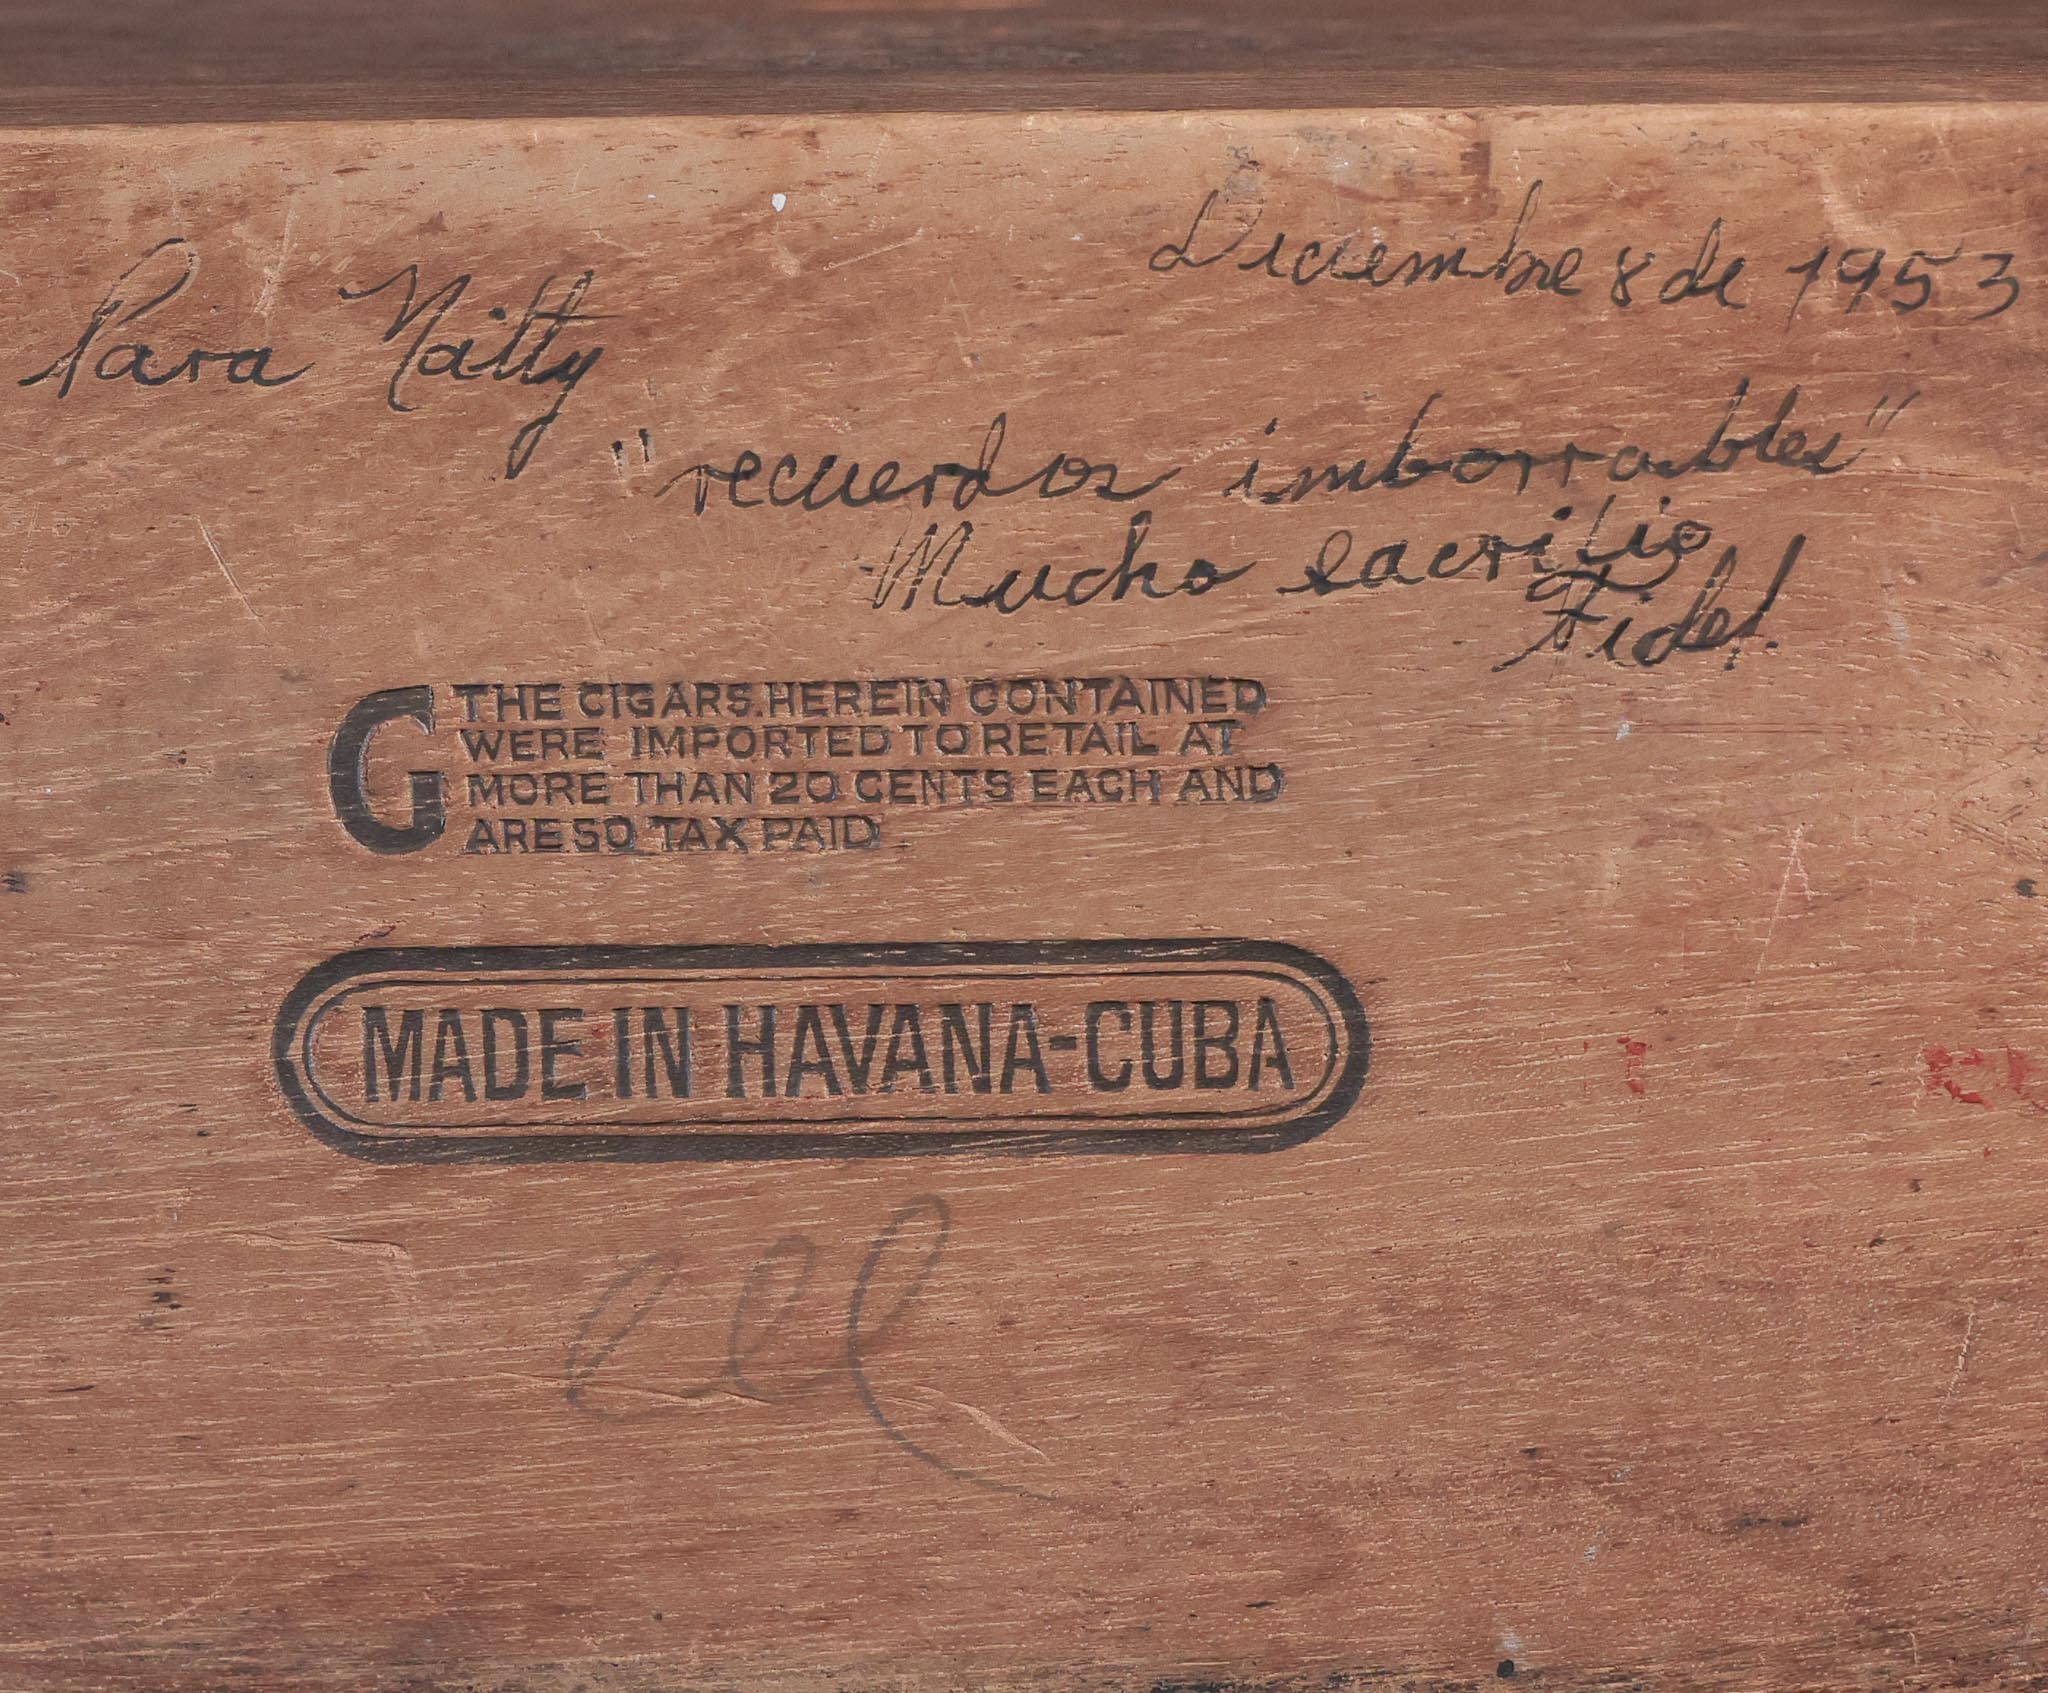 Diciembre 8 de 1953
Para Natty
"recuerdos imborrables"
Mucho sacrifio
Fidel.
G THE CIGARS HEREIN CONTAINED
WERE IMPORTED TO RETAIL AT
MORE THAN 20 CENTS EACH AND
ARE SO TAX PAID
MADE IN HAVANA-CUBA